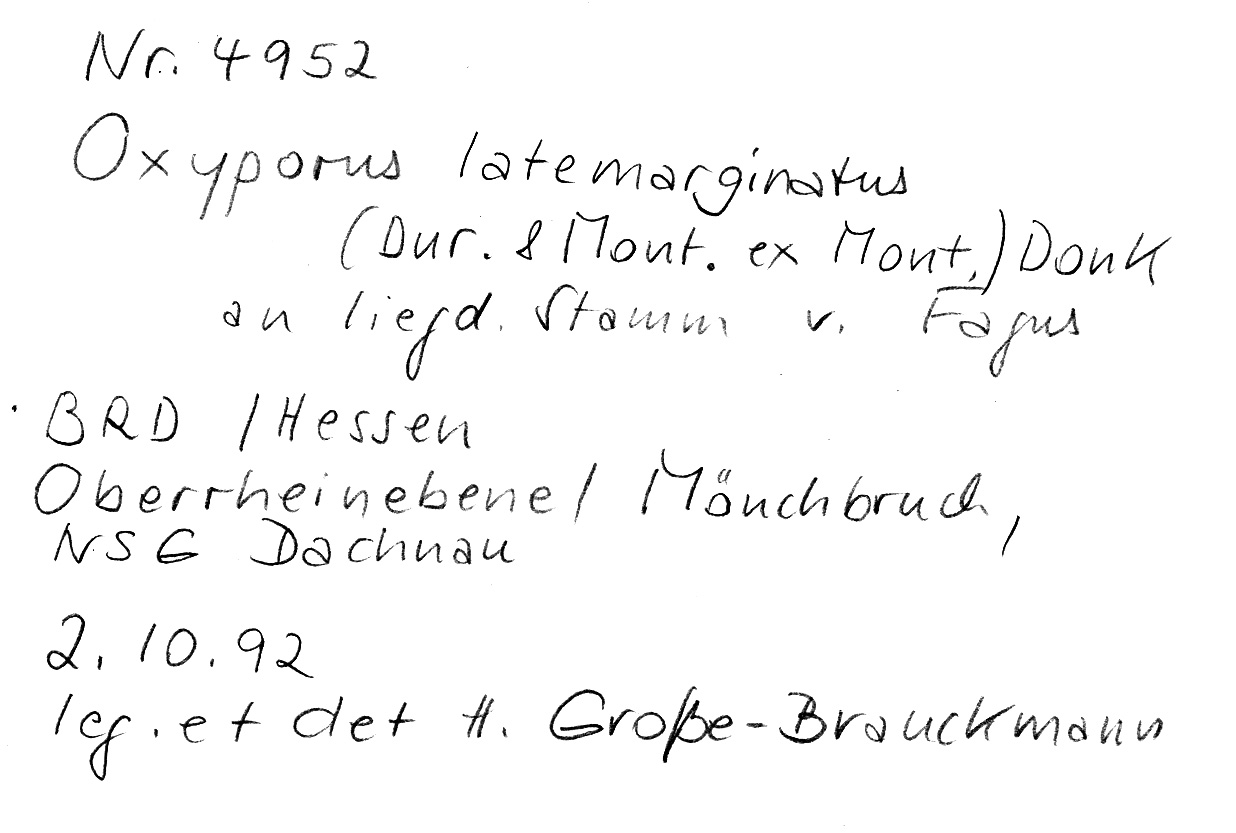 Nr. 4952
Oxyporus latemarginatus
(Dur. & Mont. ex Mont.) Donk
an liegd. Stamm v. Fagus
BRD / Hessen
Oberrheinebene / Mönchbruch,
NSG Dachnau
2.10.92
leg. et det H. Große-Brauckmann